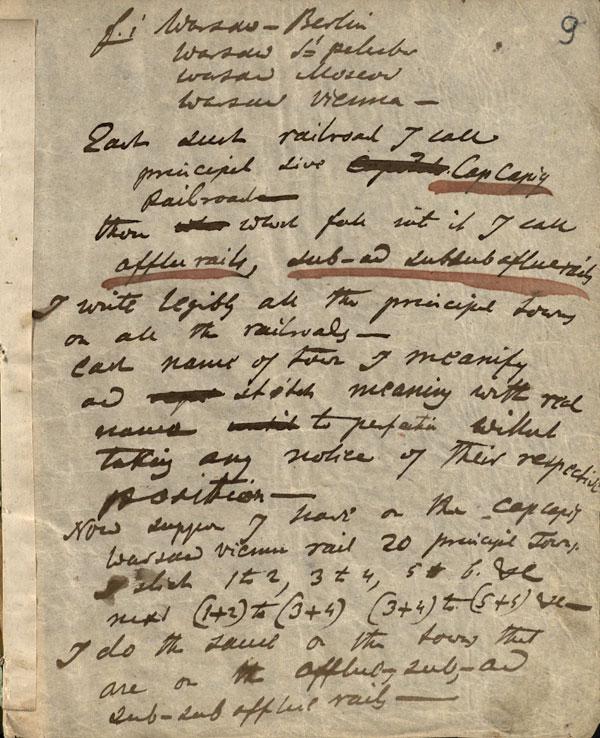 9
f.i Warsaw - Berlin
Warsaw St petersb
Warsaw Moscow
Warsaw Vienna -
Each such railroad I call
principal live CapCapiy
Railroads
those which fall into it I call
afflu rails, sub-ad subsubaflue rails
I write legibly all the principal towns
on all the railroads -
each name of town I meanify
ad stitch meaning with real
name to perfectio without
taking any notice of their respective
position -
Now suppose I have on the capcapiy
Warsaw Vienna rail 20 principal towns.
I stich 1 t 2, 3 t 4, 5 t 6. &c
next (1+2) to (3+4) (3+4) to (5+6) &c -
I do the same on the towns that
are on the afflue, sub,-ad
sub-sub afflue rails -